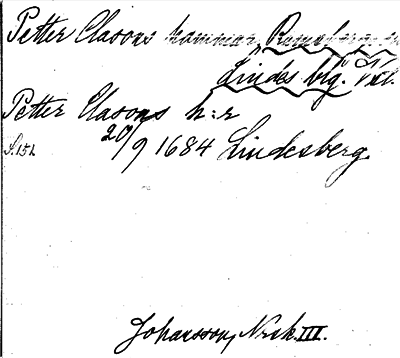 Petter Clasons hammar, Ramsbergs sn
Lindes blg. Vstl.
Petter Clasons h:r
S. 151. 20/9 1684 Lindesberg.
Johansson, Norsk. III.